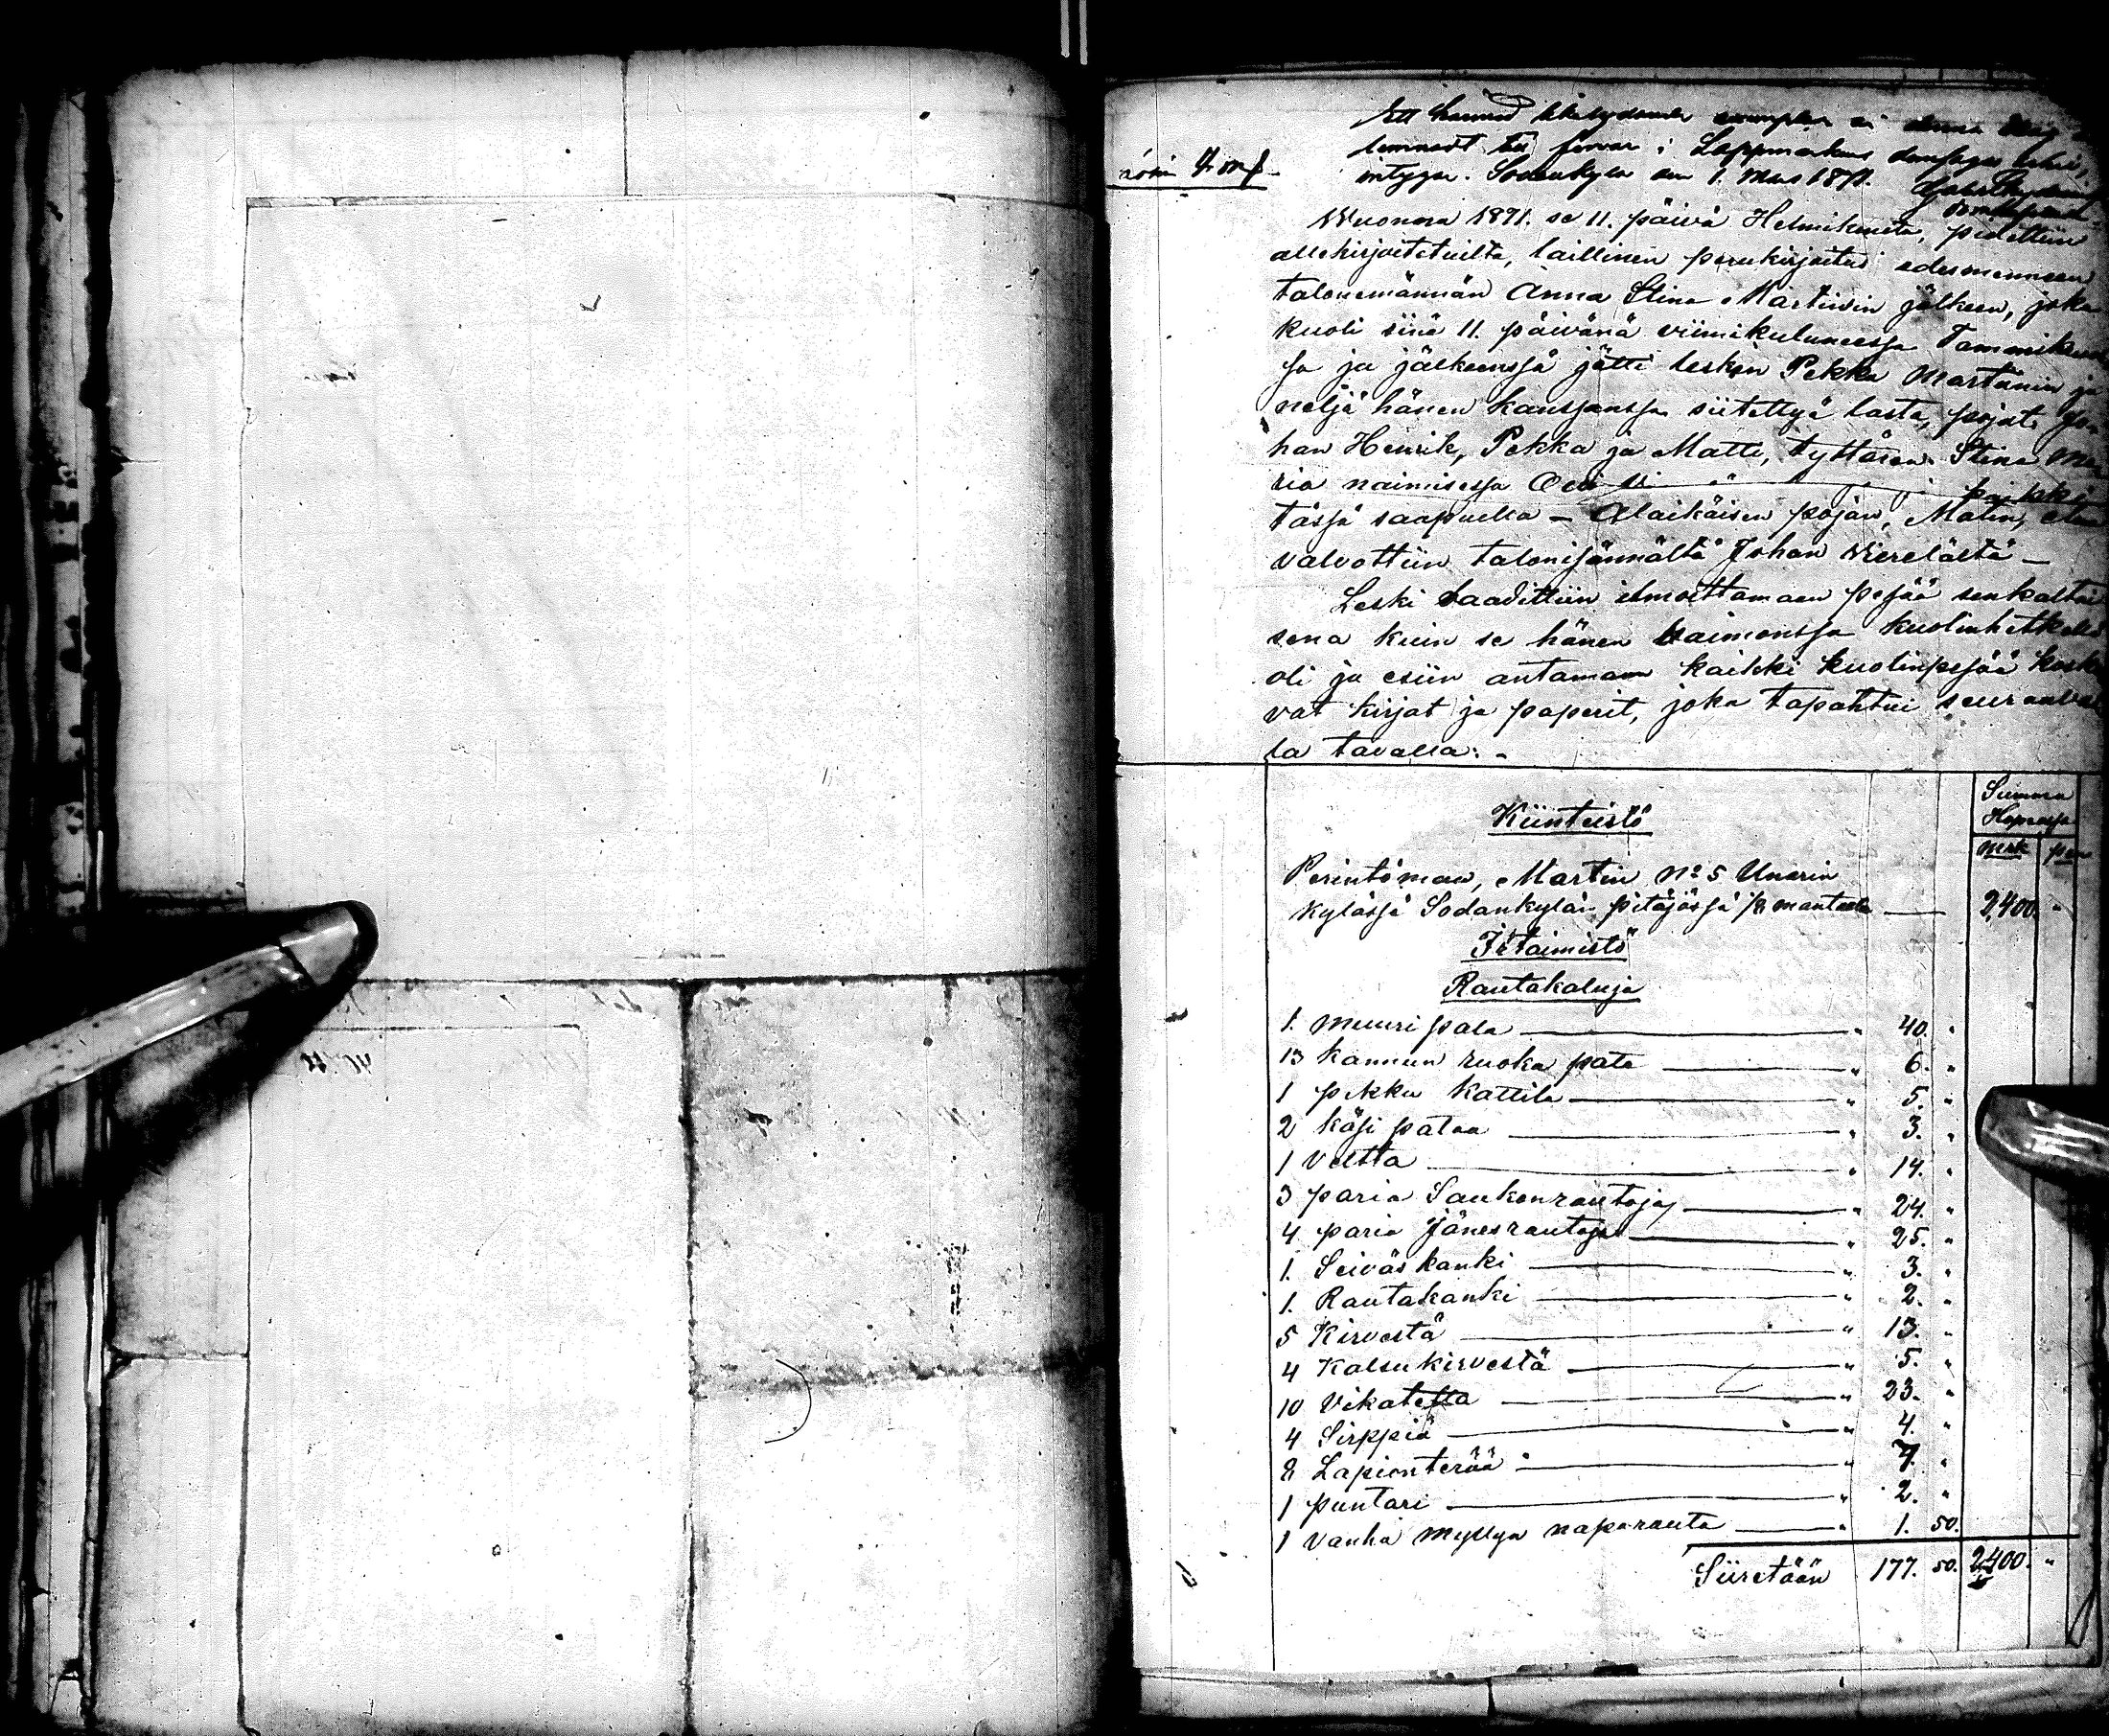 Ett härmed likalydande exemplar är denna dag
lemnadt till förvar i Lappmarkens domsagas arkiv,
intygar. Sodankylä den 1. Mars 1871.
4 mk
Wuonna 1871. se 11. päivä Helmikuuta, pidettiin
allekirjoitetuilta, laillinen perukirjoitus edesmenneen
talonemännän Anna Stina Martiinin jälkeen, joka
kuoli siinä 11. päivänä viimikuluneessa Tammikuus
sa ja jälkeensä jätti lesken Pekka Martiinin ja
neljä hänen kanssansa siitettyä lasta, pojat Jo-
han Henrik, Pekka ja Matti, tyttären Stina Ma
ria naimisessa kaikki
tässä saapuilla — Alaikäisen pojan, Matin, etua
valvottiin talonisännältä Johan Wierelältä —
Leski vaadittiin ilmoittamaan pesää senkaltai
sena kuin se hänen vaimonsa kuolinhetkellä
oli ja esiin antamaan kaikki kuolinpesää koske
vat kirjat ja paperit, joka tapahtui seuraaval
la tavalla: -
Summa
Hopeassa
Kiinteistö
mrk pen
Perintömaa, Martin No 5 Unarin
kylässä Sodankylän pitäjässä 1/8 manttalia — 2,400. "
Irtaimisto
Rautakaluja
1. muuri pata — " 40. "
13 kannun ruoka pata — " 6. "
1 pikku kattila — " 5. "
2 käsi pataa — " 3. "
1 — " 14. "
3 paria Saukonrautoja — " 24. "
4 paria jänesrautoja — " 25. "
1. Seiväskanki — " 3. "
1. Rautakanki — " 2. "
5 Kirvestä — " 13. "
4 Kalsukirvestä — " 5. "
10 Vikatetta — " 23. "
4 Sirppiä — " 4. "
8 Lapionterää — " 7. "
1 puntari — " 2. "
1 vanha myllyn naparauta — " 1. 50.
Siiretään 177. 50. 2400. "